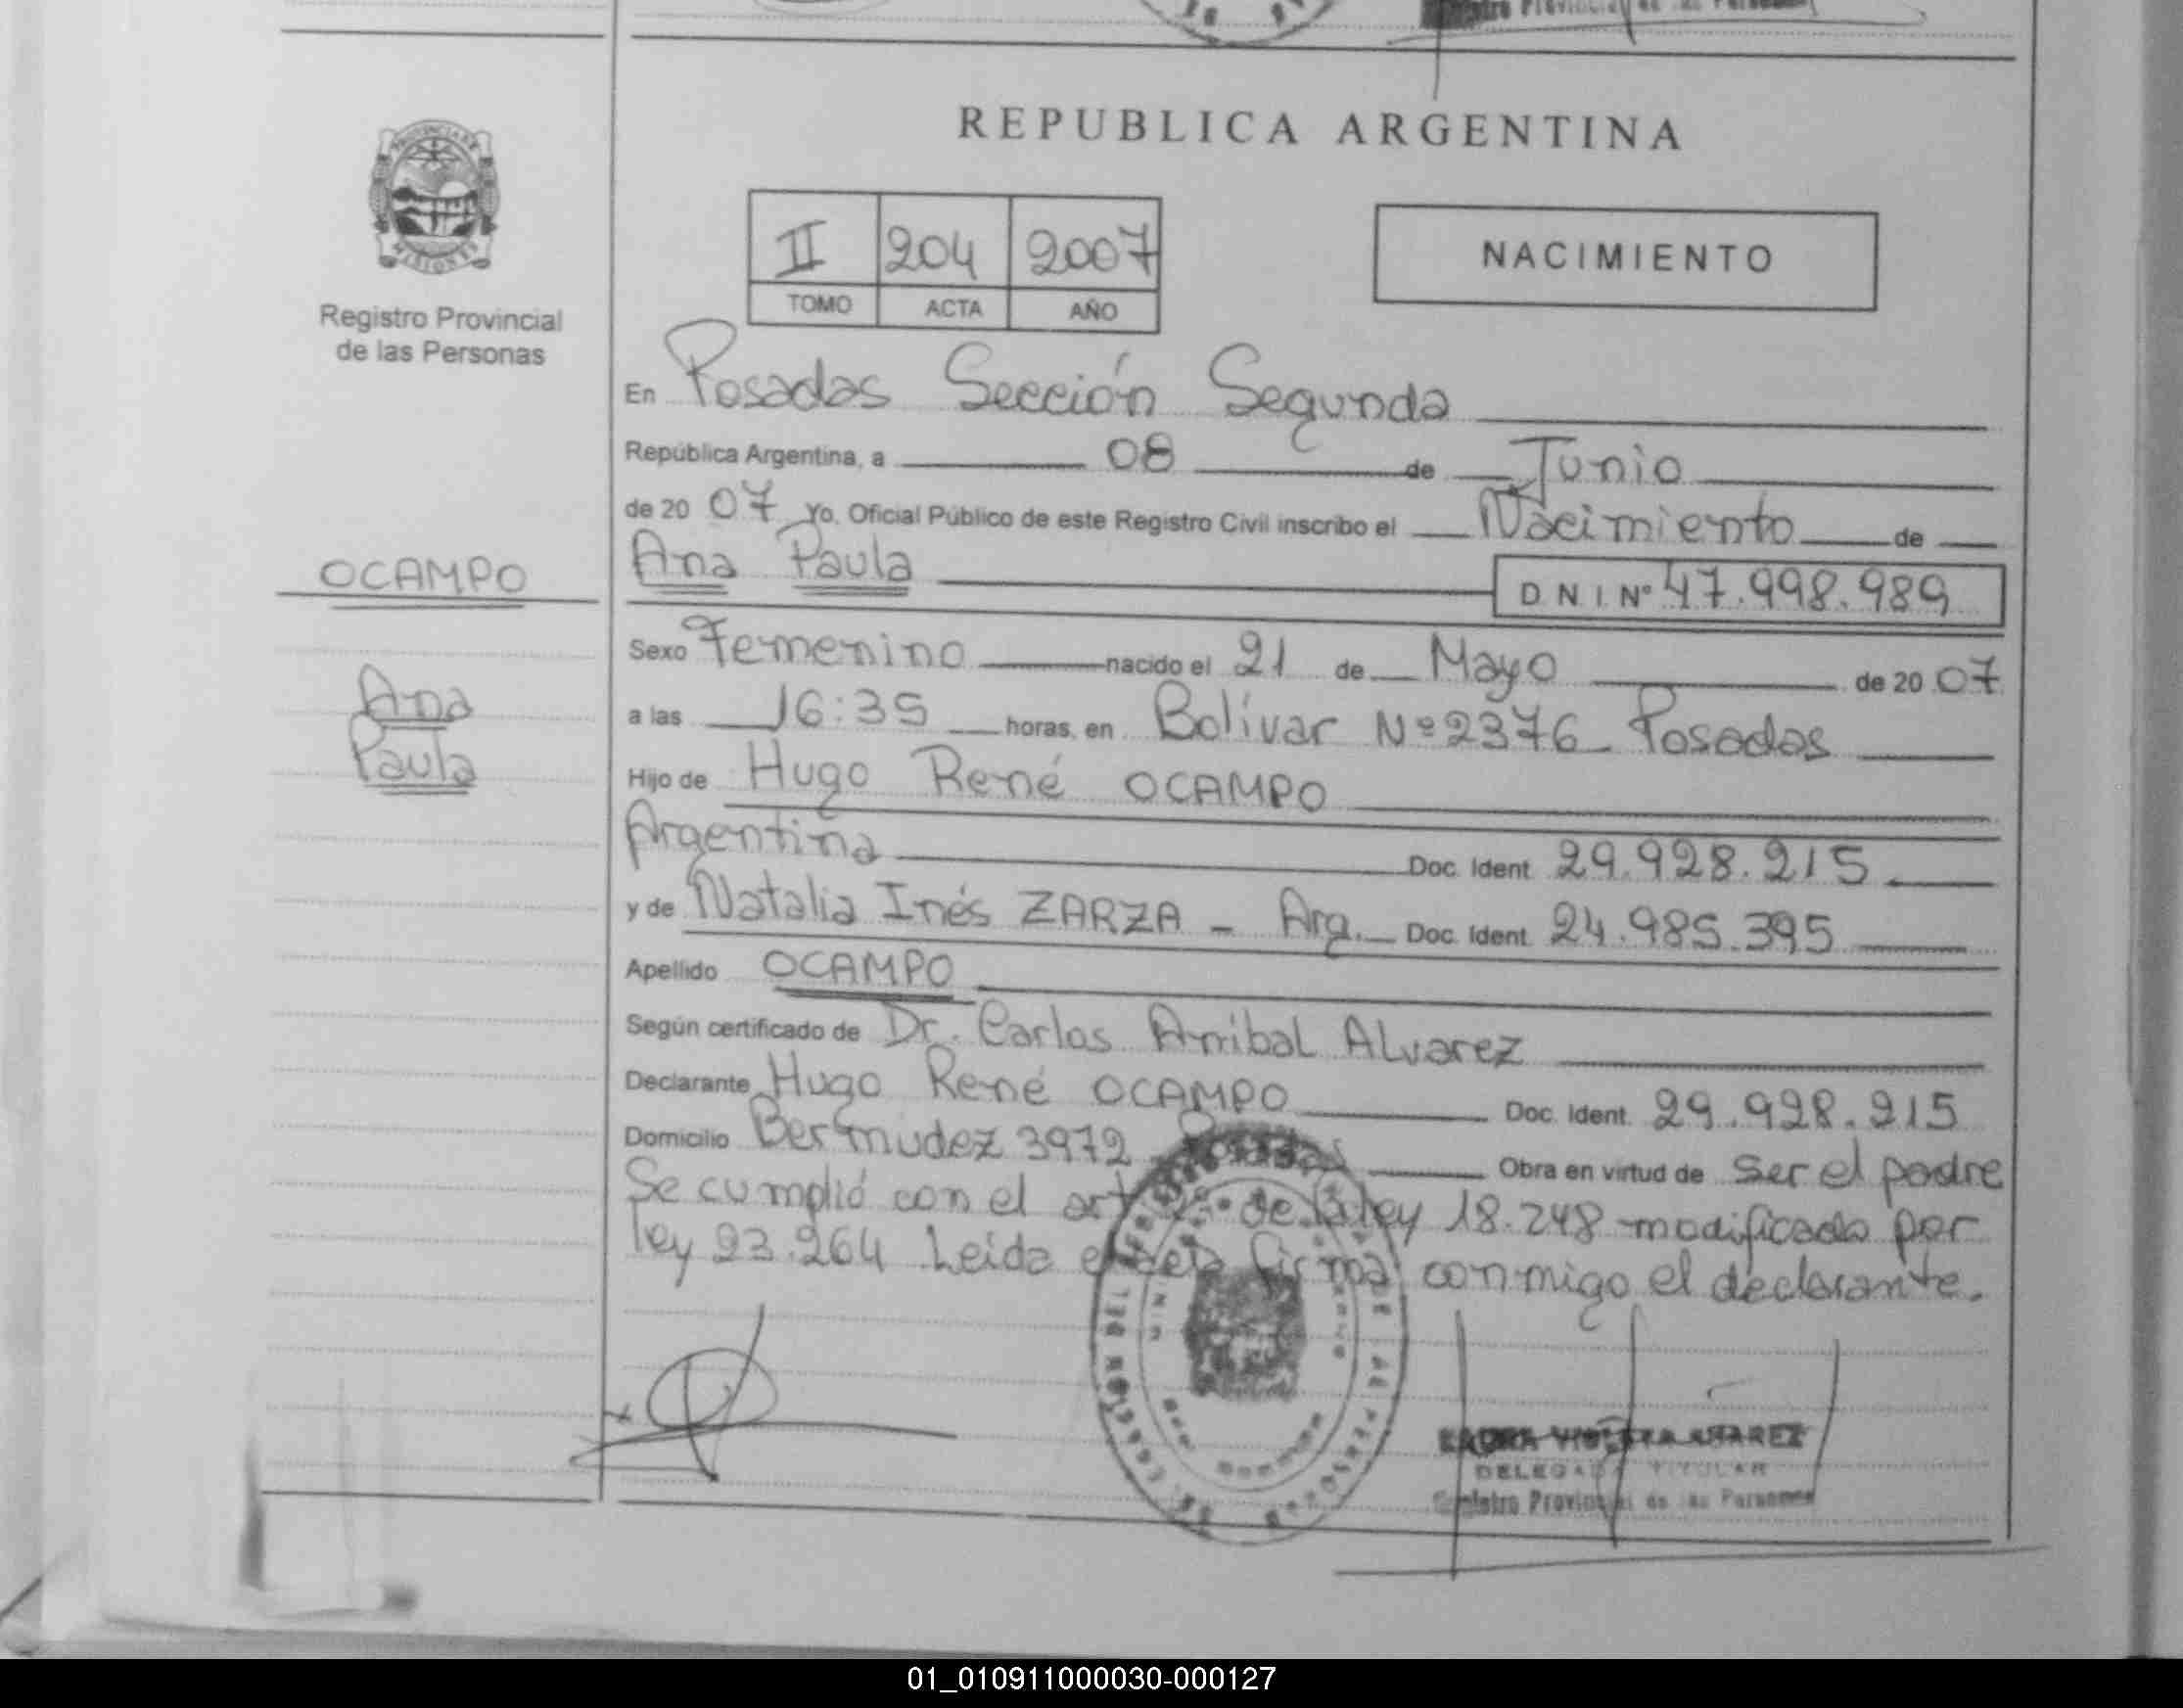 REPUBLICA ARGENTINA
II 204 2007
TOMO ACTA AÑO
NACIMIENTO
Registro Provincial
de las Personas
OCAMPO
Ana
Paula
En Posadas Sección Segunda
República Argentina, a 08 de Junio
de 20 07 Yo, Oficial Público de este Registro Civil inscribo el Nacimiento de
Ana Paula DNI Nº 47.998.989
Sexo Femenino nacido el 21 de Mayo de 20 07
a las 16:35 horas, en Bolívar Nº 2376 Posadas
Hijo de Hugo René OCAMPO
Argentina Doc. Ident. 29.928.215
y de Natalia Inés ZARZA - Arg. Doc. Ident. 24.985.395
Apellido OCAMPO
Según certificado de Dr. Carlos Anibal Alvarez
Declarante Hugo René OCAMPO Doc. Ident. 29.928.215
Domicilio Bermudez 3972 Posadas Obra en virtud de ser el padre
Se cumplió con el art de la ley 18.248 modificada por
ley 23.264 Leida el acta firma conmigo el declarante.
DELEGADA TITULAR
Registro Provincial de las Personas
01_010911000030-000127